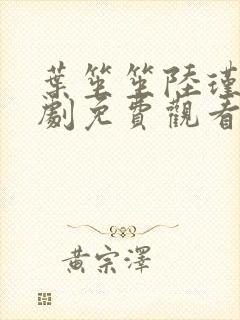 葉笙笙陸瑾
劇免費觀看
黃宗澤